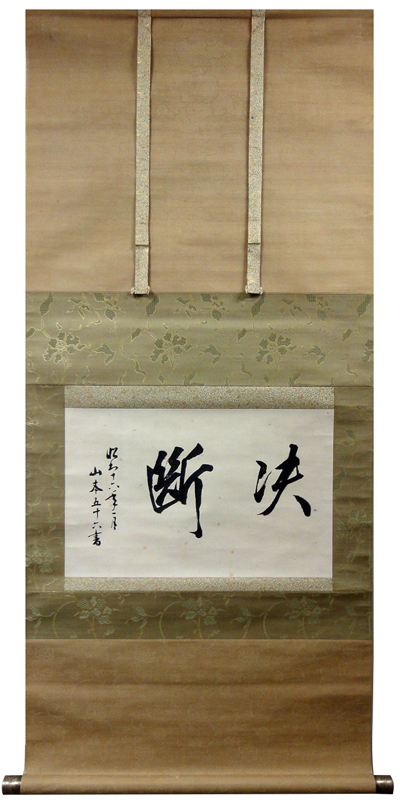 決斷
昭和十六年一月
山本五十六書